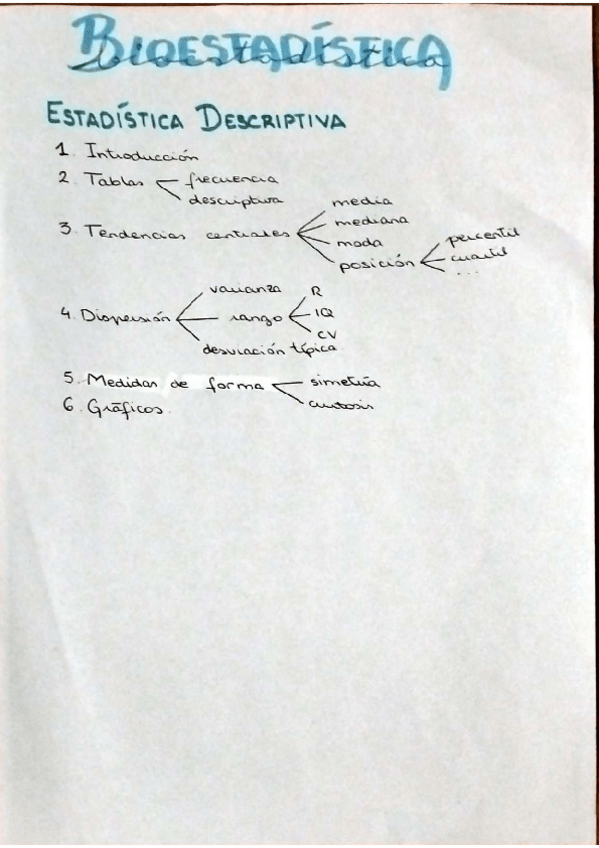 BIOESTADÍSTICA
bioestadística
ESTADÍSTICA DESCRIPTIVA
1. Introducción
2. Tablas frecuencia
descriptiva
media
mediana
3. Tendencias centrales
moda
posición
percentil
cuartil
...
varianza
4. Dispersión rango
R
IQ
CV
desviación típica
5. Medidas de forma simetría
curtosis
6. Gráficos.